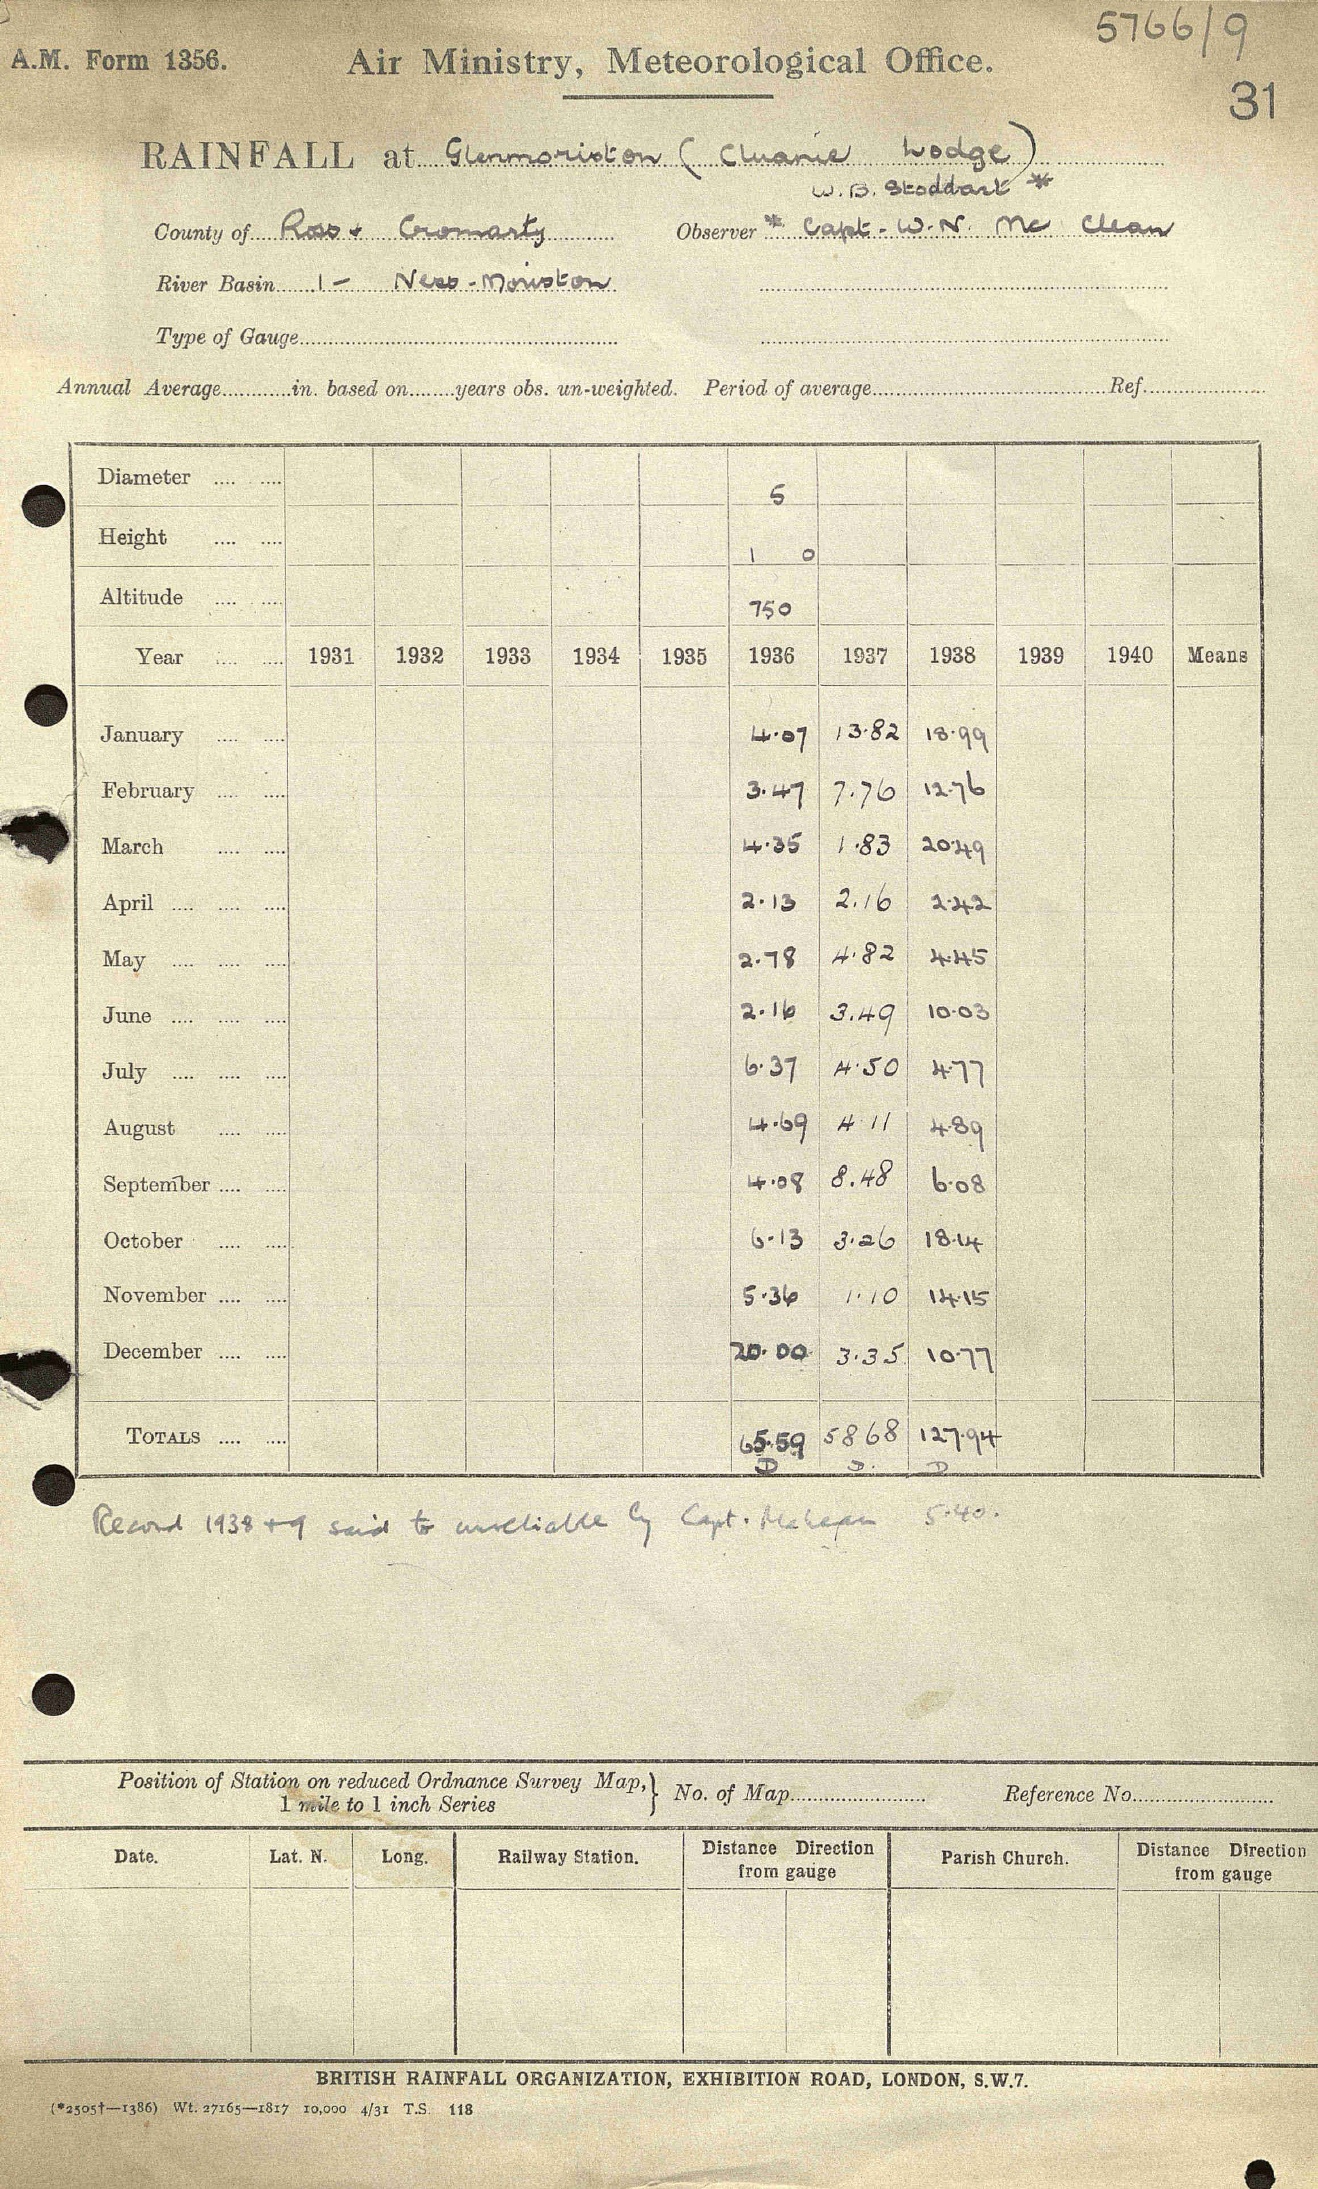 5766/9
A.M. Form 1356. Air Ministry, Meteorological Office.
31
RAINFALL at Glenmoriston (Cluanie Lodge)
W.B. Stoddart *
County of Ross & Cromarty Observer * Capt. W.N. Mc Clean
River Basin 1 - Ness - Moriston
Type of Gauge
Annual Average in. based on years obs. un-weighted. Period of average Ref.
Diameter 5
Height 1 0
Altitude 750
Year 1931 1932 1933 1934 1935 1936 1937 1938 1939 1940 Means
January 4.07 13.82 18.99
February 3.47 7.76 12.76
March 4.35 1.83 20.49
April 2.13 2.16 2.42
May 2.78 4.82 4.45
June 2.16 3.49 10.03
July 6.37 4.50 4.77
August 4.69 4.11 4.89
September 4.08 8.48 6.08
October 6.13 3.26 18.14
November 5.36 1.10 14.15
December 20.00 3.35 10.77
TOTALS 65.59 58 68 127.94
D D. D
Record 1938 + 9 said to unreliable by Capt. 5.40.
Position of Station on reduced Ordnance Survey Map, } No. of Map Reference No.
1 mile to 1 inch Series
Date. Lat. N. Long. Railway Station. Distance Direction from gauge Parish Church. Distance Direction from gauge
BRITISH RAINFALL ORGANIZATION, EXHIBITION ROAD, LONDON, S.W.7.
(*2505†—1386) Wt. 27165—1817 10,000 4/31 T.S. 118